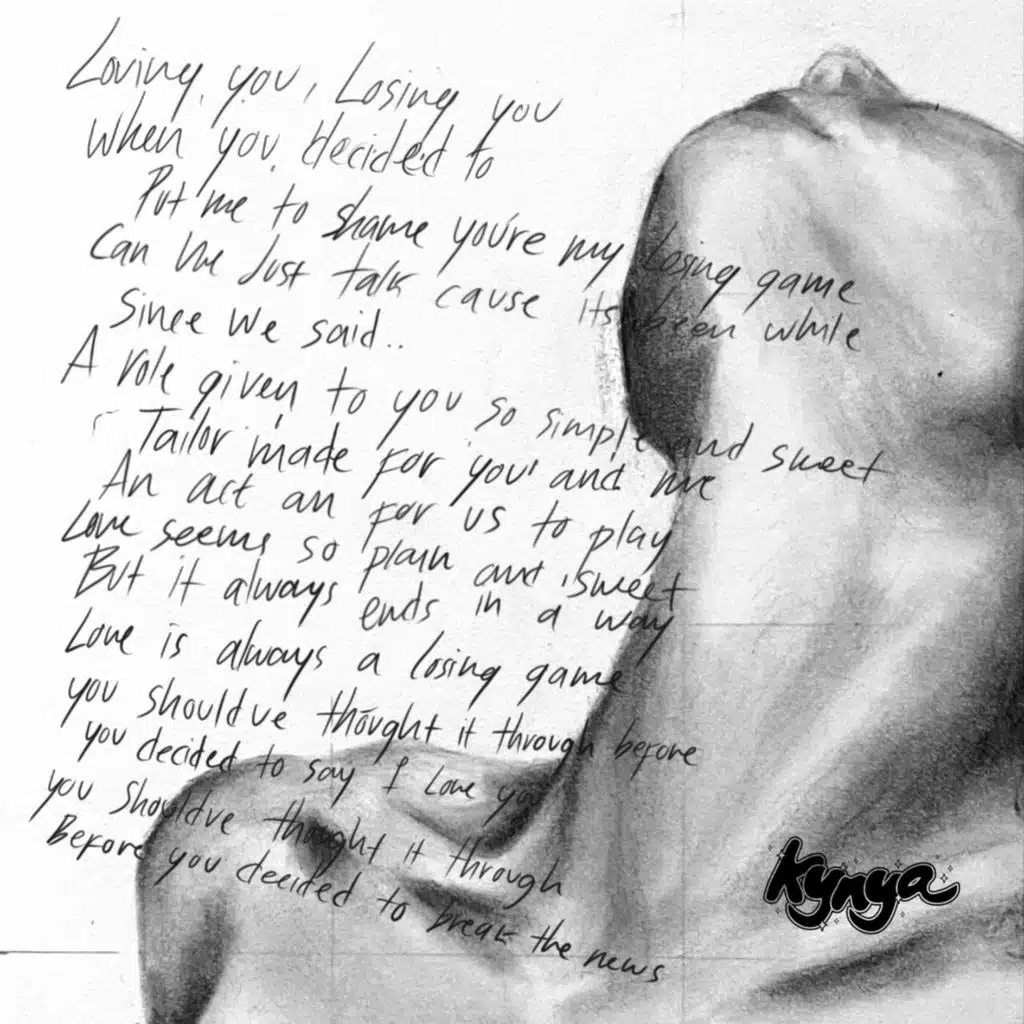 Loving you, Losing you
When you decided to
Put me to shame you're my losing game
Can we Just talk cause its been while
Since we said..
A role given to you so simple and sweet
Tailor made for you and me
An act an for us to play
Love seems so plain and sweet
But it always ends in a way
Love is always a losing game
you should've thought it through before
you decided to say I Love you
you should've thought it through
Before you decided to break the news
Kynya